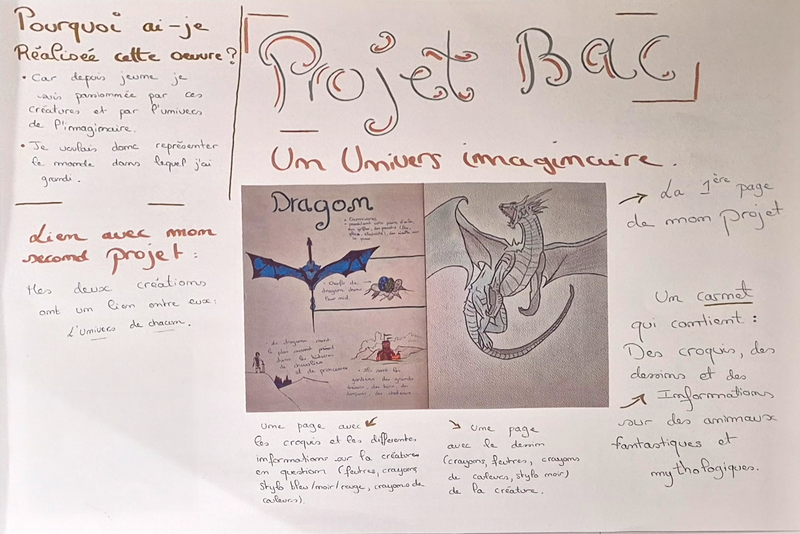 Pourquoi ai-je
Réalisée cette oeuvre ?
• Car depuis jeune je
suis passionnée par ces
créatures et par l'univers
de l'imaginaire.
• Je voulais donc représenter
le monde dans lequel j'ai
grandi.
Lien avec mon
second projet :
Mes deux créations
ont un lien entre eux :
L'univers de chacun.
Projet Bac
Un Univers imaginaire.
Dragon
• Oeufs de
dragons dans
leur nid.
• Les dragons sont
le plus souvent présent
dans les histoires
de chevaliers
et de princesses
• Ils sont les
gardiens des grands
trésors, des
La 1ère page
de mon projet
Un carnet
qui contient :
Des croquis, des
dessins et des
Informations
sur des animaux
fantastiques et
mythologiques.
Une page avec
les croquis et les différentes
informations sur la créature
en question (feutres, crayons,
stylo bleu/noir/rouge, crayons de
couleurs).
Une page
avec le dessin
(crayons, feutres, crayons
de couleurs, stylo noir)
de la créature.